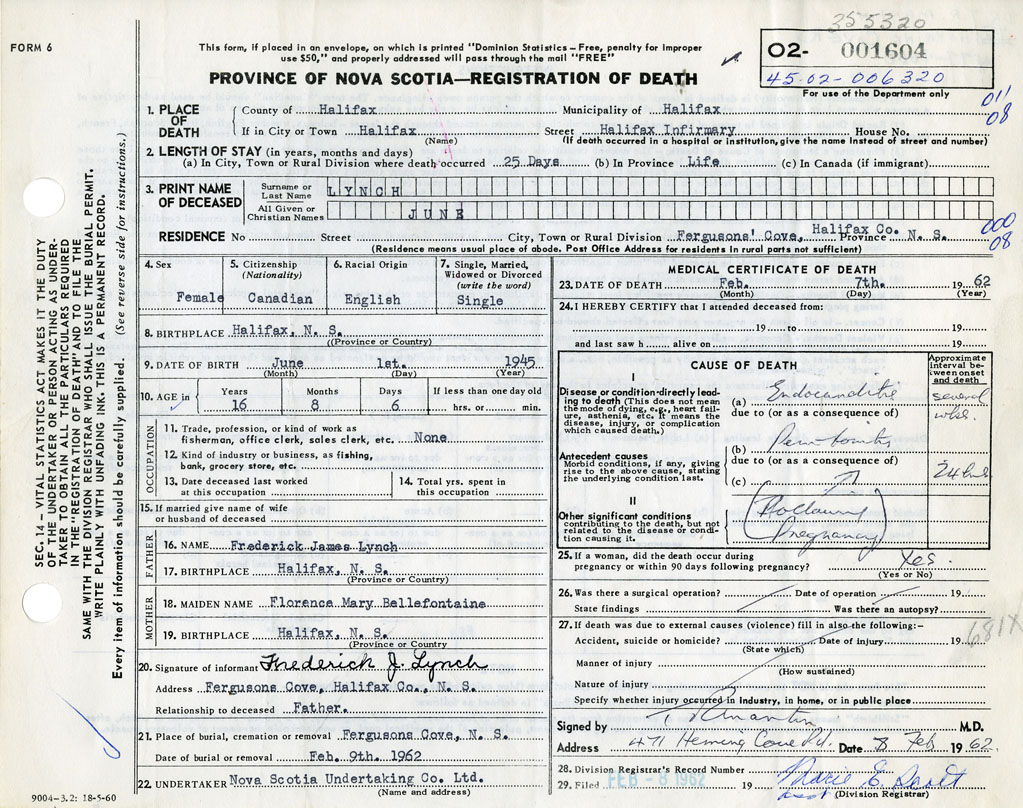 355320
FORM 6
This form, if placed in an envelope, on which is printed "Dominion Statistics – Free, penalty for improper
use $50," and properly addressed will pass through the mail "FREE"
02- 001604
45-02-006320
For use of the Department only
PROVINCE OF NOVA SCOTIA—REGISTRATION OF DEATH
011
08
1. PLACE OF DEATH
County of Halifax Municipality of Halifax
If in City or Town Halifax Street Halifax Infirmary House No.
(Name) (If death occurred in a hospital or institution, give the name instead of street and number)
2. LENGTH OF STAY (in years, months and days)
(a) In City, Town or Rural Division where death occurred 25 Days (b) In Province Life (c) In Canada (if immigrant)
3. PRINT NAME OF DECEASED
Surname or Last Name LYNCH
All Given or Christian Names JUNE
000
08
RESIDENCE No Street City, Town or Rural Division Fergusons' Cove, Halifax Co. Province N. S.
(Residence means usual place of abode. Post Office Address for residents in rural parts not sufficient)
SEC. 14 – VITAL STATISTICS ACT MAKES IT THE DUTY
OF THE UNDERTAKER OR PERSON ACTING AS UNDER-
TAKER TO OBTAIN ALL THE PARTICULARS REQUIRED
IN THE "REGISTRATION OF DEATH" AND TO FILE THE
SAME WITH THE DIVISION REGISTRAR WHO SHALL ISSUE THE BURIAL PERMIT.
WRITE PLAINLY WITH UNFADING INK. THIS IS A PERMANENT RECORD.
Every item of information should be carefully supplied. (See reverse side for instructions.)
4. Sex
Female
5. Citizenship
(Nationality)
Canadian
6. Racial Origin
English
7. Single, Married,
Widowed or Divorced
(write the word)
Single
8. BIRTHPLACE Halifax, N. S.
(Province or Country)
9. DATE OF BIRTH June 1st. 1945
(Month) (Day) (Year)
10. AGE in
Years Months Days If less than one day old
16 8 6 hrs. or min.
OCCUPATION
11. Trade, profession, or kind of work as
fisherman, office clerk, sales clerk, etc. None
12. Kind of industry or business, as fishing,
bank, grocery store, etc.
13. Date deceased last worked
at this occupation
14. Total yrs. spent in
this occupation
15. If married give name of wife
or husband of deceased
FATHER
16. NAME Frederick James Lynch
17. BIRTHPLACE Halifax, N. S.
(Province or Country)
MOTHER
18. MAIDEN NAME Florence Mary Bellefontaine
19. BIRTHPLACE Halifax, N. S.
(Province or Country)
20. Signature of informant Frederick J. Lynch
Address Fergusons Cove, Halifax Co., N. S.
Relationship to deceased Father.
21. Place of burial, cremation or removal Fergusons Cove, N. S.
Date of burial or removal Feb. 9th. 1962
22. UNDERTAKER Nova Scotia Undertaking Co. Ltd.
(Name and address)
9004–3.2: 18-5-60
MEDICAL CERTIFICATE OF DEATH
23. DATE OF DEATH Feb. 7th. 1962
(Month) (Day) (Year)
24. I HEREBY CERTIFY that I attended deceased from:
19 to 19
and last saw h alive on 19
CAUSE OF DEATH
Approximate
interval be-
tween onset
and death
I
Disease or condition directly lead-
ing to death (This does not mean
the mode of dying, e.g., heart fail-
ure, asthenia, etc. It means the
disease, injury, or complication
which caused death.)
(a) Endocarditis
several
wks.
due to (or as a consequence of)
(b)
Antecedent causes
Morbid conditions, if any, giving
rise to the above cause, stating
the underlying condition last.
due to (or as a consequence of)
(c)
24 hrs
II
Other significant conditions
contributing to the death, but not
related to the disease or condi-
tion causing it.
(Following
Pregnancy)
25. If a woman, did the death occur during
pregnancy or within 90 days following pregnancy? Yes.
(Yes or No)
26. Was there a surgical operation? Date of operation 19
State findings Was there an autopsy?
27. If death was due to external causes (violence) fill in also the following:–
681X
Accident, suicide or homicide? Date of injury 19
(State which)
Manner of injury
(How sustained)
Nature of injury
Specify whether injury occurred in industry, in home, or in public place
Signed by M.D.
Address 471 Herring Cove Rd. Date 8 Feb 1962.
28. Division Registrar's Record Number
29. Filed FEB - 8 1962 19 Marie E.
(Division Registrar)